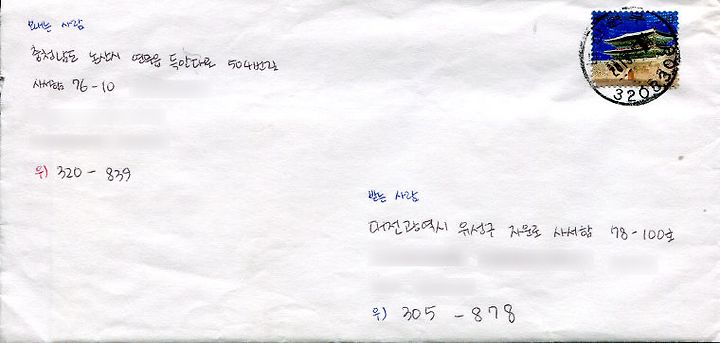 보내는 사람
충청남도 논산시 연무읍 득안대로 504번길
사서함 76-10
우) 320-839
받는 사람
대전광역시 유성구 자운로 사서함 78-100호
우) 305-878